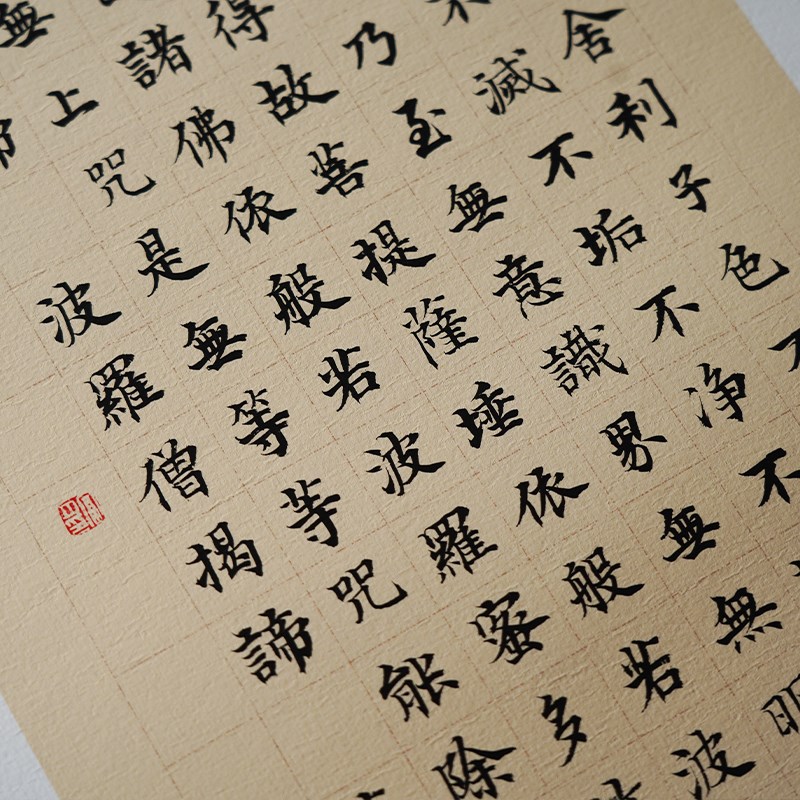 舍利子色
滅不垢不淨不
乃至無意識界無無明
得故菩提薩埵依般若波
諸佛依般若波羅蜜多
無上咒是無等等咒能除
波羅僧揭諦